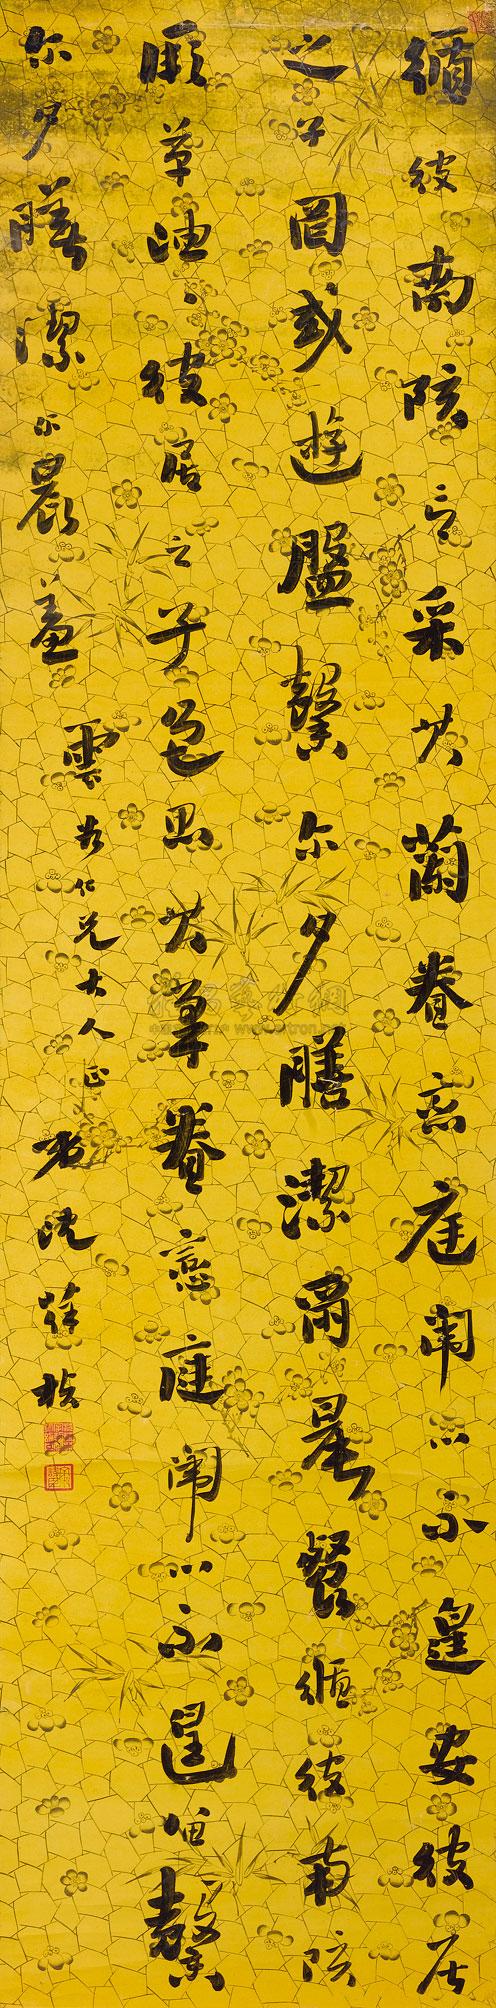 循彼南陔言采其蘭眷戀庭闈心不遑安彼居
之子罔或遊盤馨尔夕膳潔爾晨餐循彼南陔
厥草油々彼居之子色思其柔眷戀庭闈心不遑留馨
尔夕膳潔尔晨羞
雲仁兄大人正 沈葆楨